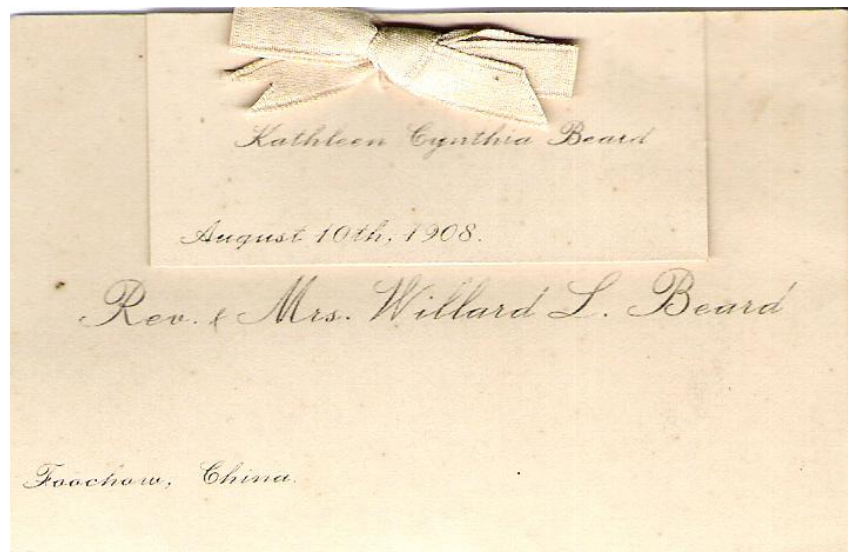 Kathleen Cynthia Beard
August 10th, 1908.
Rev. & Mrs. Willard L. Beard
Foochow, China.